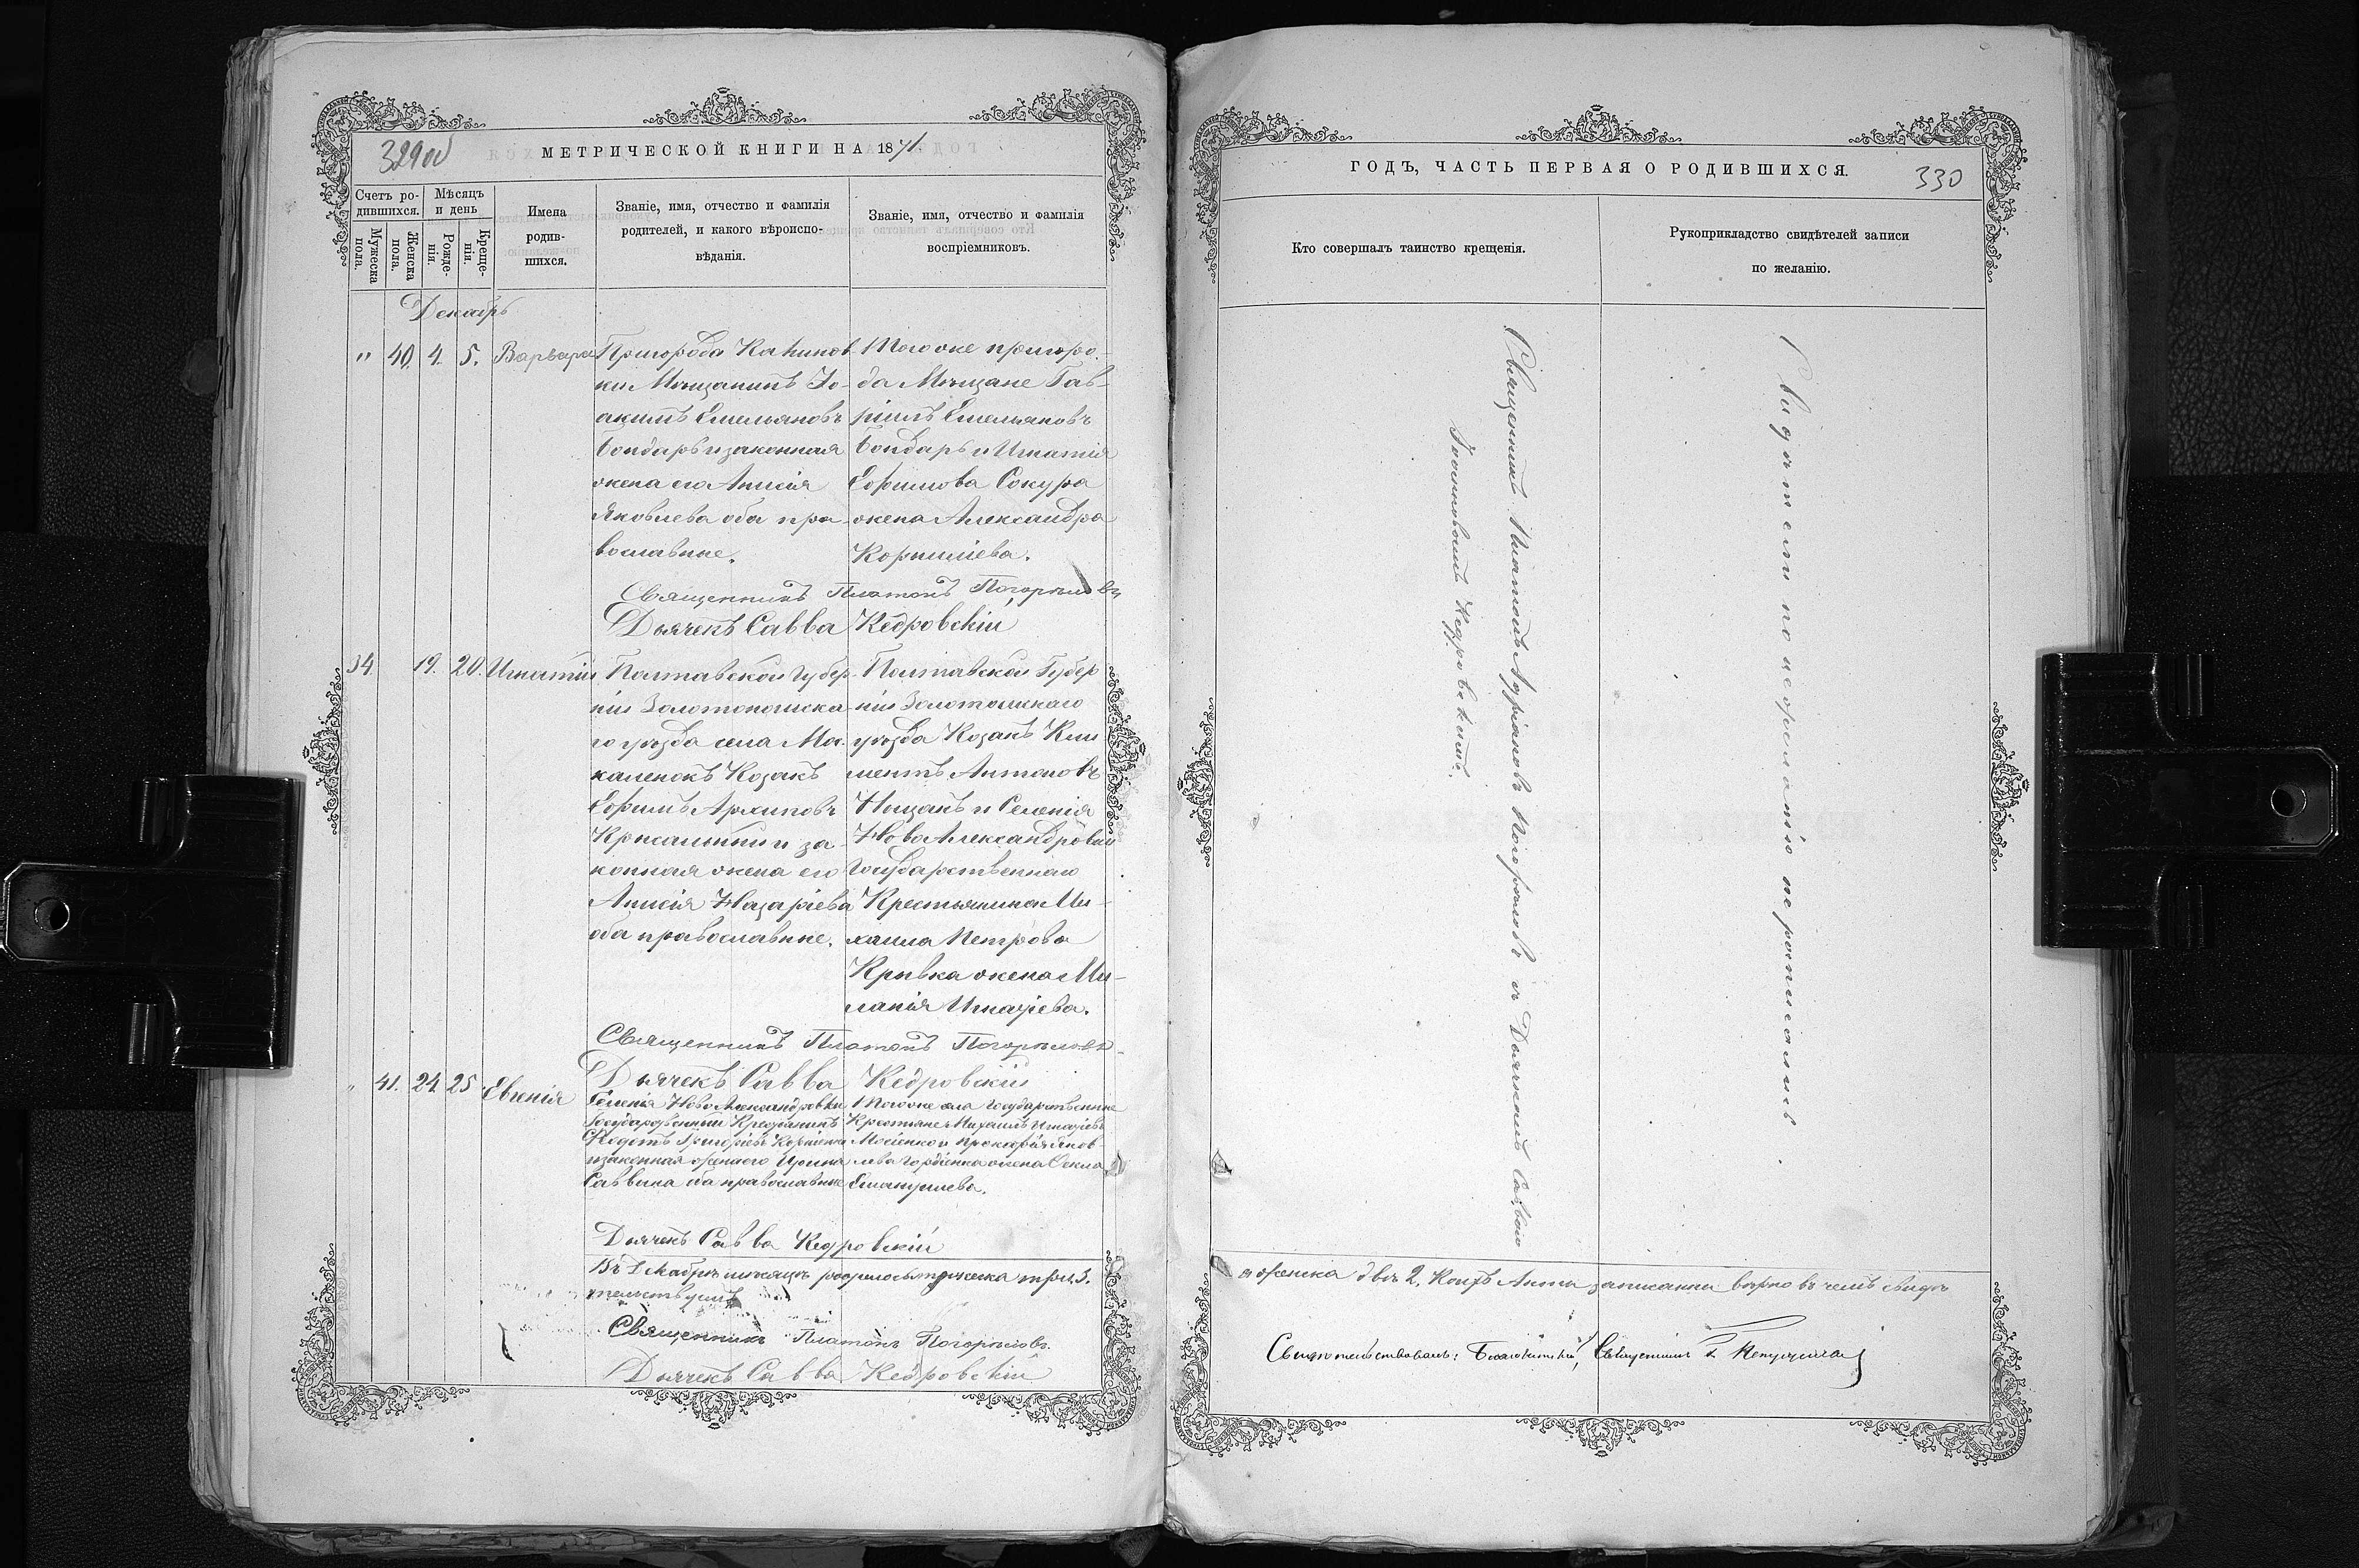 329об
МЕТРИЧЕСКОЙ КНИГИ НА 1871
Счетъ ро-
дившихся.
Мѣсяцъ
и день
Мужеска
пола.
Женска
пола.
Рожде-
нія.
Креще-
нія.
Имена
родив-
шихся.
Званіе, имя, отчество и фамилія
родителей, и какого вѣроиспо-
вѣданія.
Званіе, имя, отчество и фамилія
воспріемниковъ.
Декабрь
" 40. 4. 5. Варвара
Пригорода Калинов-
ки Мѣщанинъ Іо-
акимъ Емельяновъ
Бондарь и законная
жена его Анисія
Яковлева оба пра-
вославные.
Того же пригоро-
да Мѣщане Гав-
ріилъ Емельяновъ
Бондарь и Игнатія
Ефимова Сокура
жена Александра
Корниліева.
Священникъ Платонъ Погорѣловъ
Дьячекъ Савва Кедровскій
34. 19. 20. Игнатій
Полтавской Губер-
ніи Золотоношска-
го уѣзда села Мо-
каленокъ Козакъ
Ефимъ Архиповъ
и за-
конная жена его
Анисія Назаріева
оба православные.
Полтавской Губер
ніи Золотошскаго
уѣзда Козакъ Кли
ментъ Антоновъ
Ницакъ и Селенія
Ново Александровки
Государственнаго
Крестьянина Ми-
хаила Петрова
Кривка жена Ми-
ланія Игнатіева.
Священникъ Платонъ Погорѣловъ
Дьячекъ Савва Кедровскій
" 41. 24. 25. Евгенія
Селенія Ново Александровки
Государственный Крестьянинъ
Федотъ Григорьевъ Корніенко
и законная жена его Ирина
Саввина оба православные
Того же села Государственные
Крестьяне Михаилъ Игнатіевъ
Мосіенко и Прокофія Яков-
лева Гордіенка жена Текла
Дьячекъ Савва Кедровскій
Въ Декабрѣ мѣсяцѣ родилось мужеска три 3.
тельствуемъ
Священникъ Платонъ Погорѣловъ.
Дьячекъ Савва Кедровскій
ГОДЪ, ЧАСТЬ ПЕРВАЯ О РОДИВШИХСЯ.
330
Кто совершалъ таинство крещенія.
Рукоприкладство свидѣтелей записи
по желанію.
Священникъ Платонъ Адріановъ Погорѣловъ съ Дьячкомъ Саввою
Іоанновымъ Кедровскимъ.
Свидѣтели по не росписались
а женска двѣ 2. Коихъ Акты записанны вѣрно въ чемъ свидѣ
Свидѣтельствовалъ: Благочинный, Священникъ